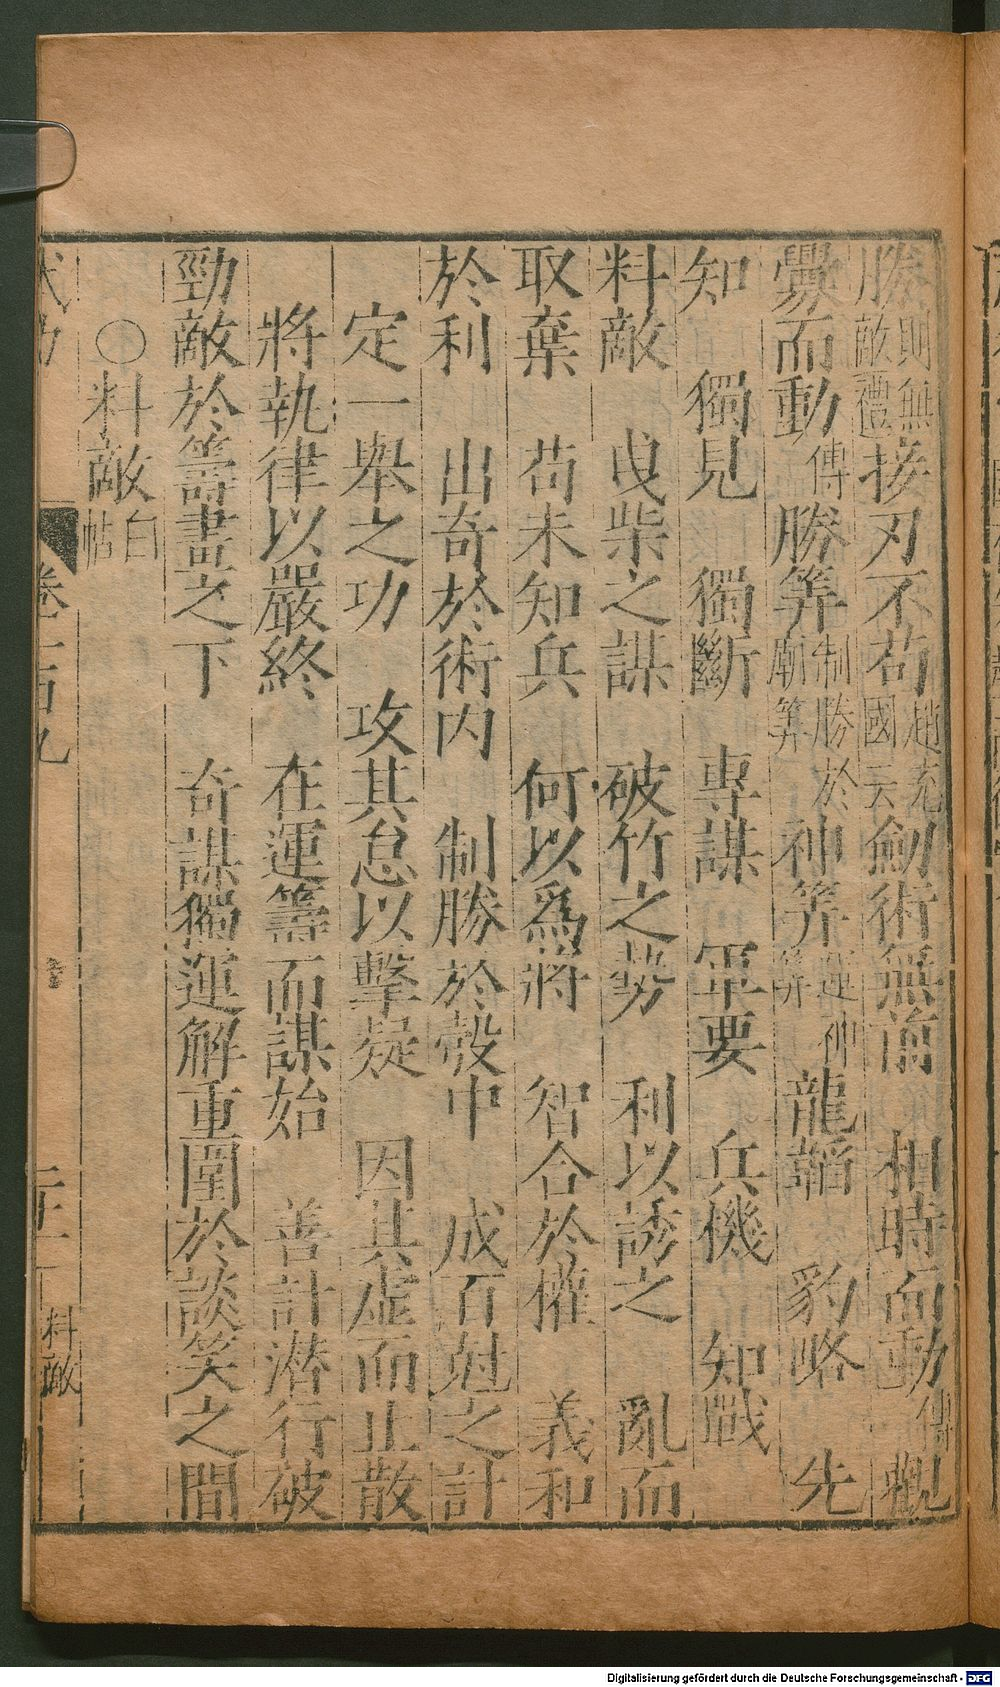 勝則無敵禮接刃不苟趙充國云劍術無前　相時而動傳觀
釁而動傳勝筭制勝於廟筭神筭運神筭龍韜　豹略　先
知　獨見　獨斷　專謀　軍要　兵機　知戰
料敵　曳柴之謀　破竹之勢　利以誘之　亂而
取棄　苟未知兵　何以爲將　智合於權　義和
於利　出奇於術內　制勝於彀中　成百尅之計
定一舉之功　攻其怠以擊疑　因其虛而止散
將執律以嚴終　在運籌而謀始　善計潛行破
勁敵於籌畫之下　奇謀獨運解重圍於談笑之間
〇料敵白帖
武功　卷一百九　二十二　料敵
Digitalisierung gefördert durch die Deutsche Forschungsgemeinschaft - DFG